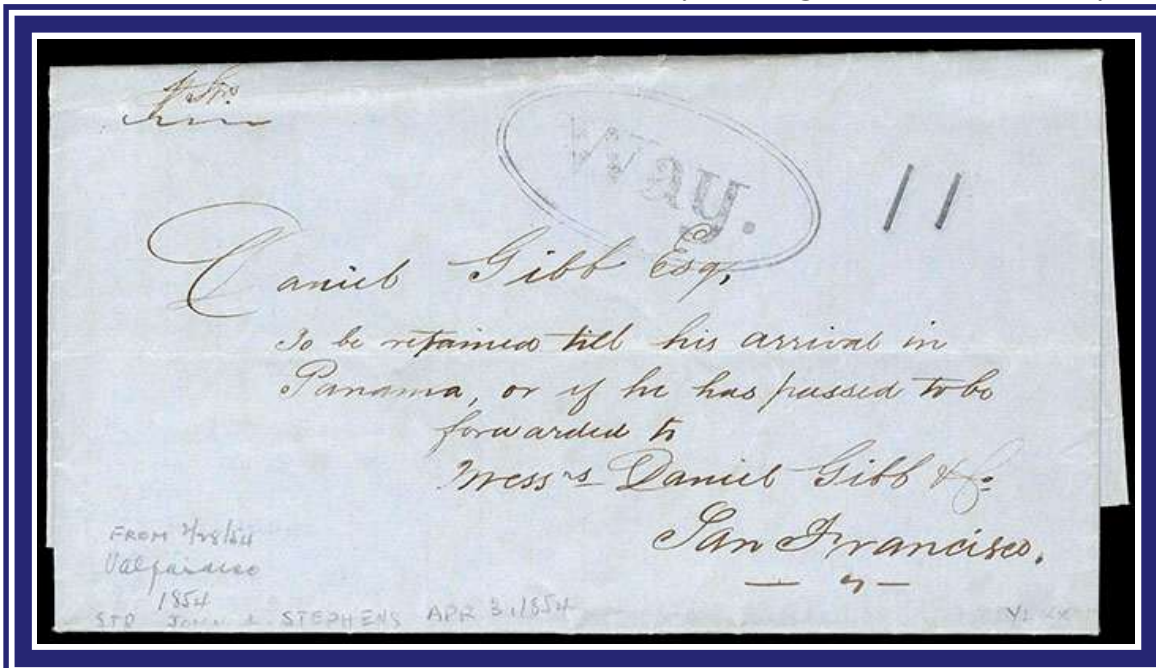 Way.
11
Daniel Gibb Esq,
To be retained till his arrival in
Panama, or if he has passed to be
forwarded to
Mess rs Daniel Gibb & Co
San Francisco.
FROM
Valparaiso
1854
STR JOHN L STEPHENS APR 3, 1854